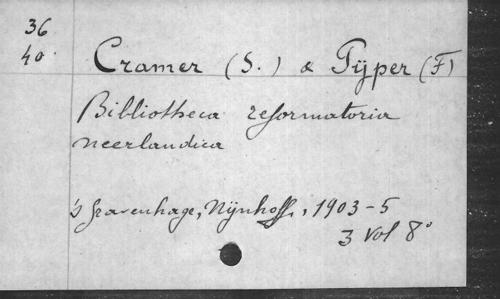 36
40. Cramer (S.) & Pÿper (F)
Bibliotheca reformatoria
neerlandica
's Gravenhage, Nÿnhoff, 1903-5
3 Vol 8°